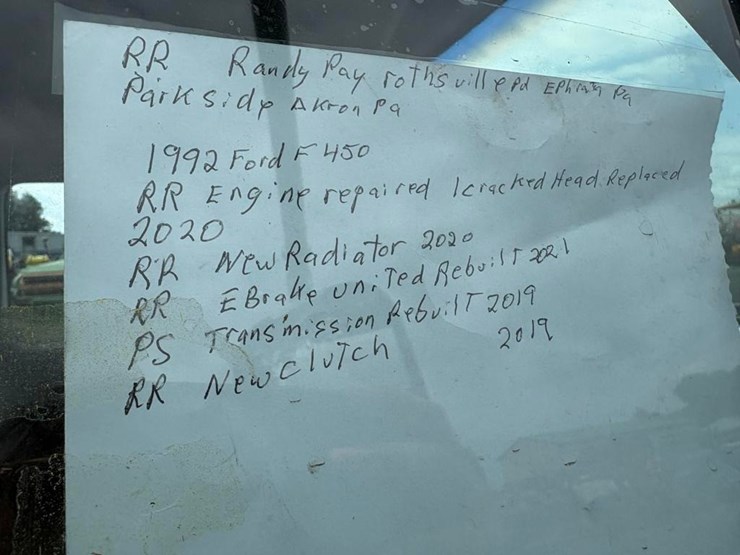 RR Randy Pay rothsville Rd Ephrata Pa
Parkside Akron Pa
1992 Ford F450
RR Engine repaired 1 cracked Head Replaced
2020
RR New Radiator 2020
RR E Brake uniTed RebuilT 2021
PS Transmission RebuilT 2019
RR New cluTch 2019